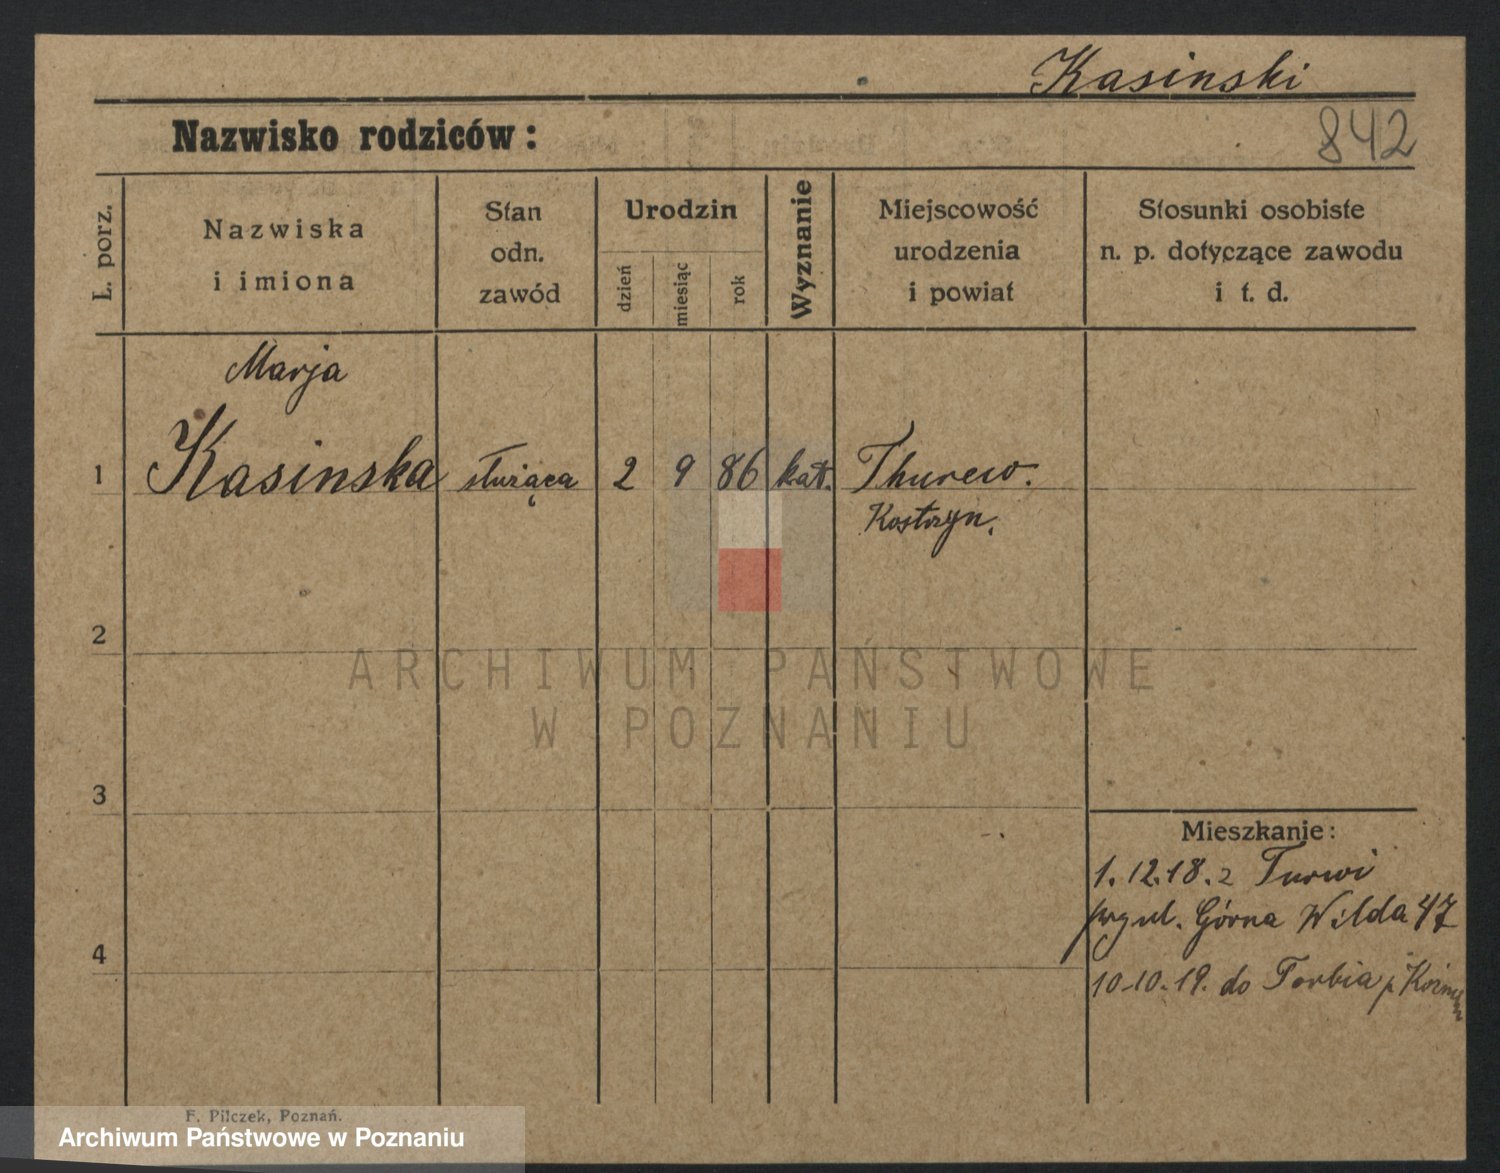 Kasinski
Nazwisko rodziców:
842
L. porz.
Nazwiska
i imiona
Stan
odn.
zawód
Urodzin
dzień
miesiąc
rok
Wyznanie
Miejscowość
urodzenia
i powiat
Stosunki osobiste
n. p. dotyczące zawodu
i t. d.
Marja
1 Kasinska służąca 2 9 86 kat. Thurew.
Kostrzyn.
2
ARCHIWUM PAŃSTWOWE
W POZNANIU
3
Mieszkanie:
1.12.18. z Turwi
ul. Górna Wilda 47
4
10-10.19. do p.
F. Pilczek, Poznań.
Archiwum Państwowe w Poznaniu